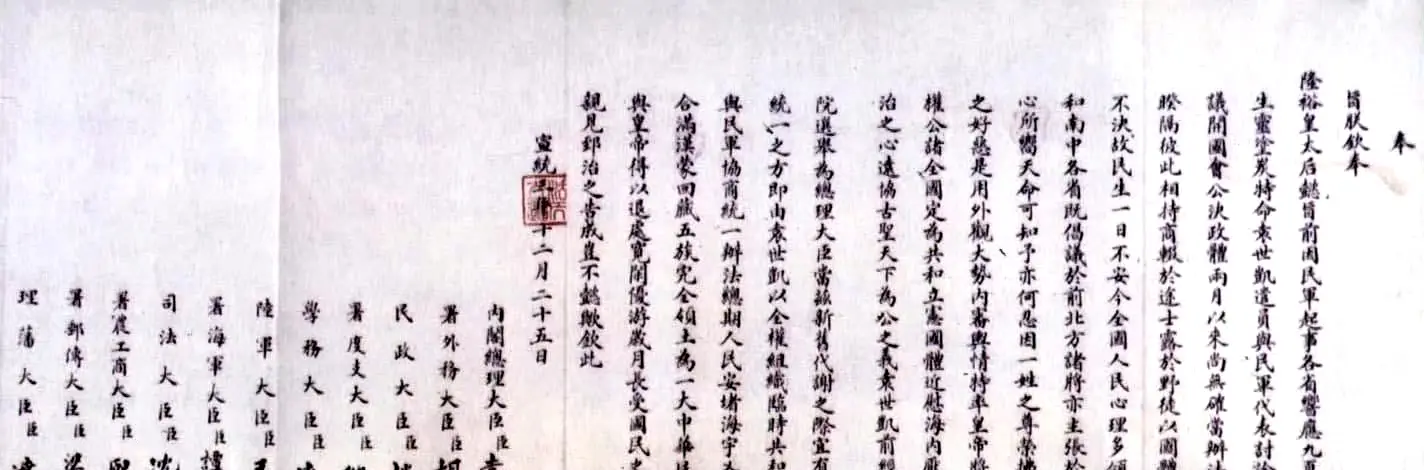 奉
旨朕欽奉
隆裕皇太后懿旨前因民軍起事各省響應九夏
生靈塗炭特命袁世凱遣員與民軍代表討
議開國會公決政體兩月以來尚無確當辦
睽隔彼此相持商輟於途士露於野徒以國體
不決故民生一日不安今全國人民心理多
和南中各省既倡議於前北方諸將亦主張於
心所嚮天命可知予亦何忍因一姓之尊榮拂
之好惡是用外觀大勢內審輿情特率皇帝將
權公諸全國定為共和立憲國體近慰海內厭
治之心遠協古聖天下為公之義袁世凱前經
院選舉為總理大臣當茲新舊代謝之際宜有
統一之方即由袁世凱以全權組織臨時共和
與民軍協商統一辦法總期人民安堵海宇
合滿漢蒙回藏五族完全領土為一大中華民
與皇帝得以退處寬閒優游歲月長受國民之
親見郅治之告成豈不懿歟欽此
宣統三年十二月二十五日
內閣總理大臣臣袁
署外務大臣臣胡
民政大臣臣
署度支大臣臣
學務大臣臣
陸軍大臣臣王
署海軍大臣臣譚
司法大臣臣沈
署農工商大臣臣熙
署郵傳大臣臣梁
理藩大臣臣達